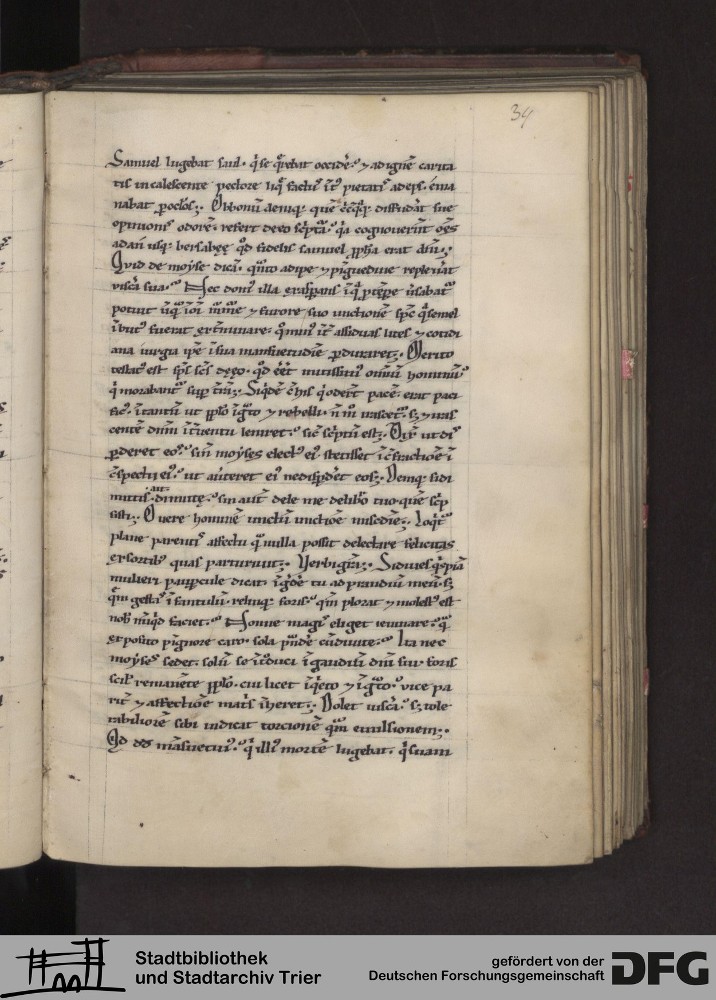 34
Samuel lugebat saul. q̇ se q̄rebat occidē. ⁊ ad ignē carita
tis incalescente pectore liq̄ factus īt' pietatis adeps. ema
nabat p oc̄los;. Ob bonū deniq;
opinionis odorē. refert de eo sc̄pta. q̇a cognoverūt oēs
a dan usq; bersabee q̇d fidelis samuel ꝓpħa erat dn̄i;.
Quid de moyse dicā. q̇nto adipe ⁊ pīguedine replevat
viscā sua. Nec donis illa
potuit furore suo unctione sp̄c q̇ semel
fuerat assiduas lites ⁊ cotidi
ana iurgia ip̄e ī sua mansuetudīe pduraret;. Merito
testatus est sp̄s sc̄s de eo. q̇d eēt mitissimus omniū hominū
q̇ morabant' sup t̄rā;. Siq̇dē c̄ his q̇ odert' pacē. erat paci
fic'. ītantū ut pplo īg̊to ⁊ rebelli. n̄ m̊ irascet'. s; ⁊ iras
centē dn̄m īt̄ventu leniret. sic̄ sc̄ptū est;. Dix̄ ut dis
pderet eos. sin̄ moyses electus eius stetisset ī c̄fractiōe ī
c̄spectu eius. ut av̄teret eū ne dispdēt eos;. Deniq; si di
mittis aut dimitte. sin aut̄ dele me de libro tuo quē sc̄p
sisti;. O uere hominē unctū unctiōe misc̄die;. Loq̇t'
plane parentis affectu q̄ nulla possit delectare felicitas
exsortibus quas parturivit;. Verbi gr̄a;. Si dives q̇spiā
mulieri paup̄cule dicat. īg̊dē tu ad prandiū meū. s;
q̄m gestas īfantulū relinq; foris. q̄m plorat ⁊ molestus est
nob̄ nūq̇d faciet. Nonne magis eliget ieiunare. q̄
exposito pignore caro. sola
Ita nec
moyses sedet. solū se īt̊duci ī gaudiū dn̄i sui foris
scil' remanēte pplo. cui licet īq̇eto ⁊ īg̊to. vice pa
rit' ⁊ affectiōe mat's īheret;. Dolet viscā. s; tole
rabiliorē sibi iudicat torcionē q̄m evulsionem;.
Qd dd mansuetius. q̇ illius mortē lugebat. q̇ suam
Stadtbibliothek
und Stadtarchiv Trier
gefördert von der
Deutschen Forschungsgemeinschaft
DFG